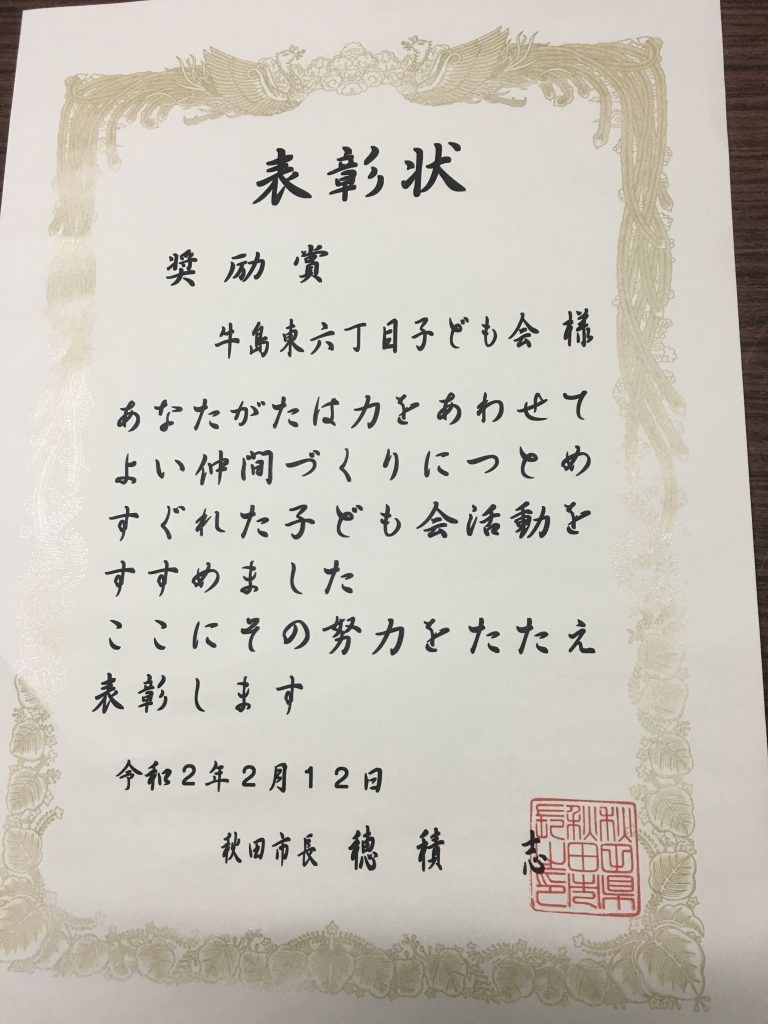 表彰状
奨励賞
牛島東六丁目子ども会 様
あなたがたは力をあわせて
よい仲間づくりにつとめ
すぐれた子ども会活動を
すすめました
ここにその努力をたたえ
表彰します
令和２年２月１２日
秋田市長 穂積 志
秋田県
秋田市
長之印